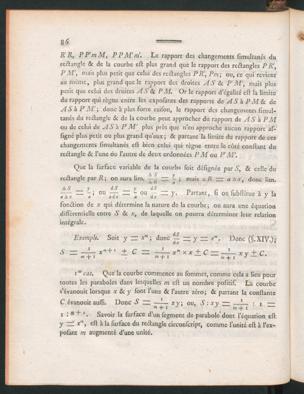 86
RR, PP'mM, PPM'm'. Le rapport des changements simultanés du
rectangle & de la courbe est plus grand que le rapport des rectangles PR',
PM', mais plus petit que celui des rectangles PR', Pm; ou, ce qui revient
au même, plus grand que le rapport des droites AS & P'M', mais plus
petit que celui des droites AS & PM. Or le rapport d'égalité est la limite
du rapport qui règne entre les exposants des rapports de AS à PM & de
AS à P'M'; donc à plus forte raison, le rapport des changements simul-
tanés du rectangle & de la courbe peut approcher du rapport de AS à PM
ou de celui de AS à P'M' plus près que n'en approche aucun rapport as-
signé plus petit ou plus grand qu'eux; & partant la limite du rapport de ces
changements simultanés est bien celui qui règne entre le côté constant du
rectangle & l'une ou l'autre de deux ordonnées PM ou P'M'.
Que la surface variable de la courbe soit désignée par S, & celle du
rectangle par R; on aura
y. Partant, si on substitue à y la
fonction de x qui détermine la nature de la courbe; on aura une équation
différentielle entre S & x, de laquelle on pourra déterminer leur relation
intégrale.
Exemple. Soit y = xⁿ; donc dS/dx = y = xⁿ. Donc (§.XIV.);
S = 1/(n+1) xⁿ⁺¹ ± C = 1/(n+1) xⁿ × x ± C = 1/(n+1) xy ± C.
1ᵉʳ cas. Que la courbe commence au sommet, comme cela a lieu pour
toutes les paraboles dans lesquelles n est un nombre positif. La courbe
s'évanouit lorsque x & y sont l'une & l'autre zéro; & partant la constante
C évanouit aussi. Donc S = 1/(n+1) xy; ou, S : xy = 1/(n+1) : 1 =
1 : n+1. Savoir la surface d'un segment de parabole dont l'équation est
y = xⁿ, est à la surface du rectangle circonscript, comme l'unité est à l'ex-
posant n augmenté d'une unité.